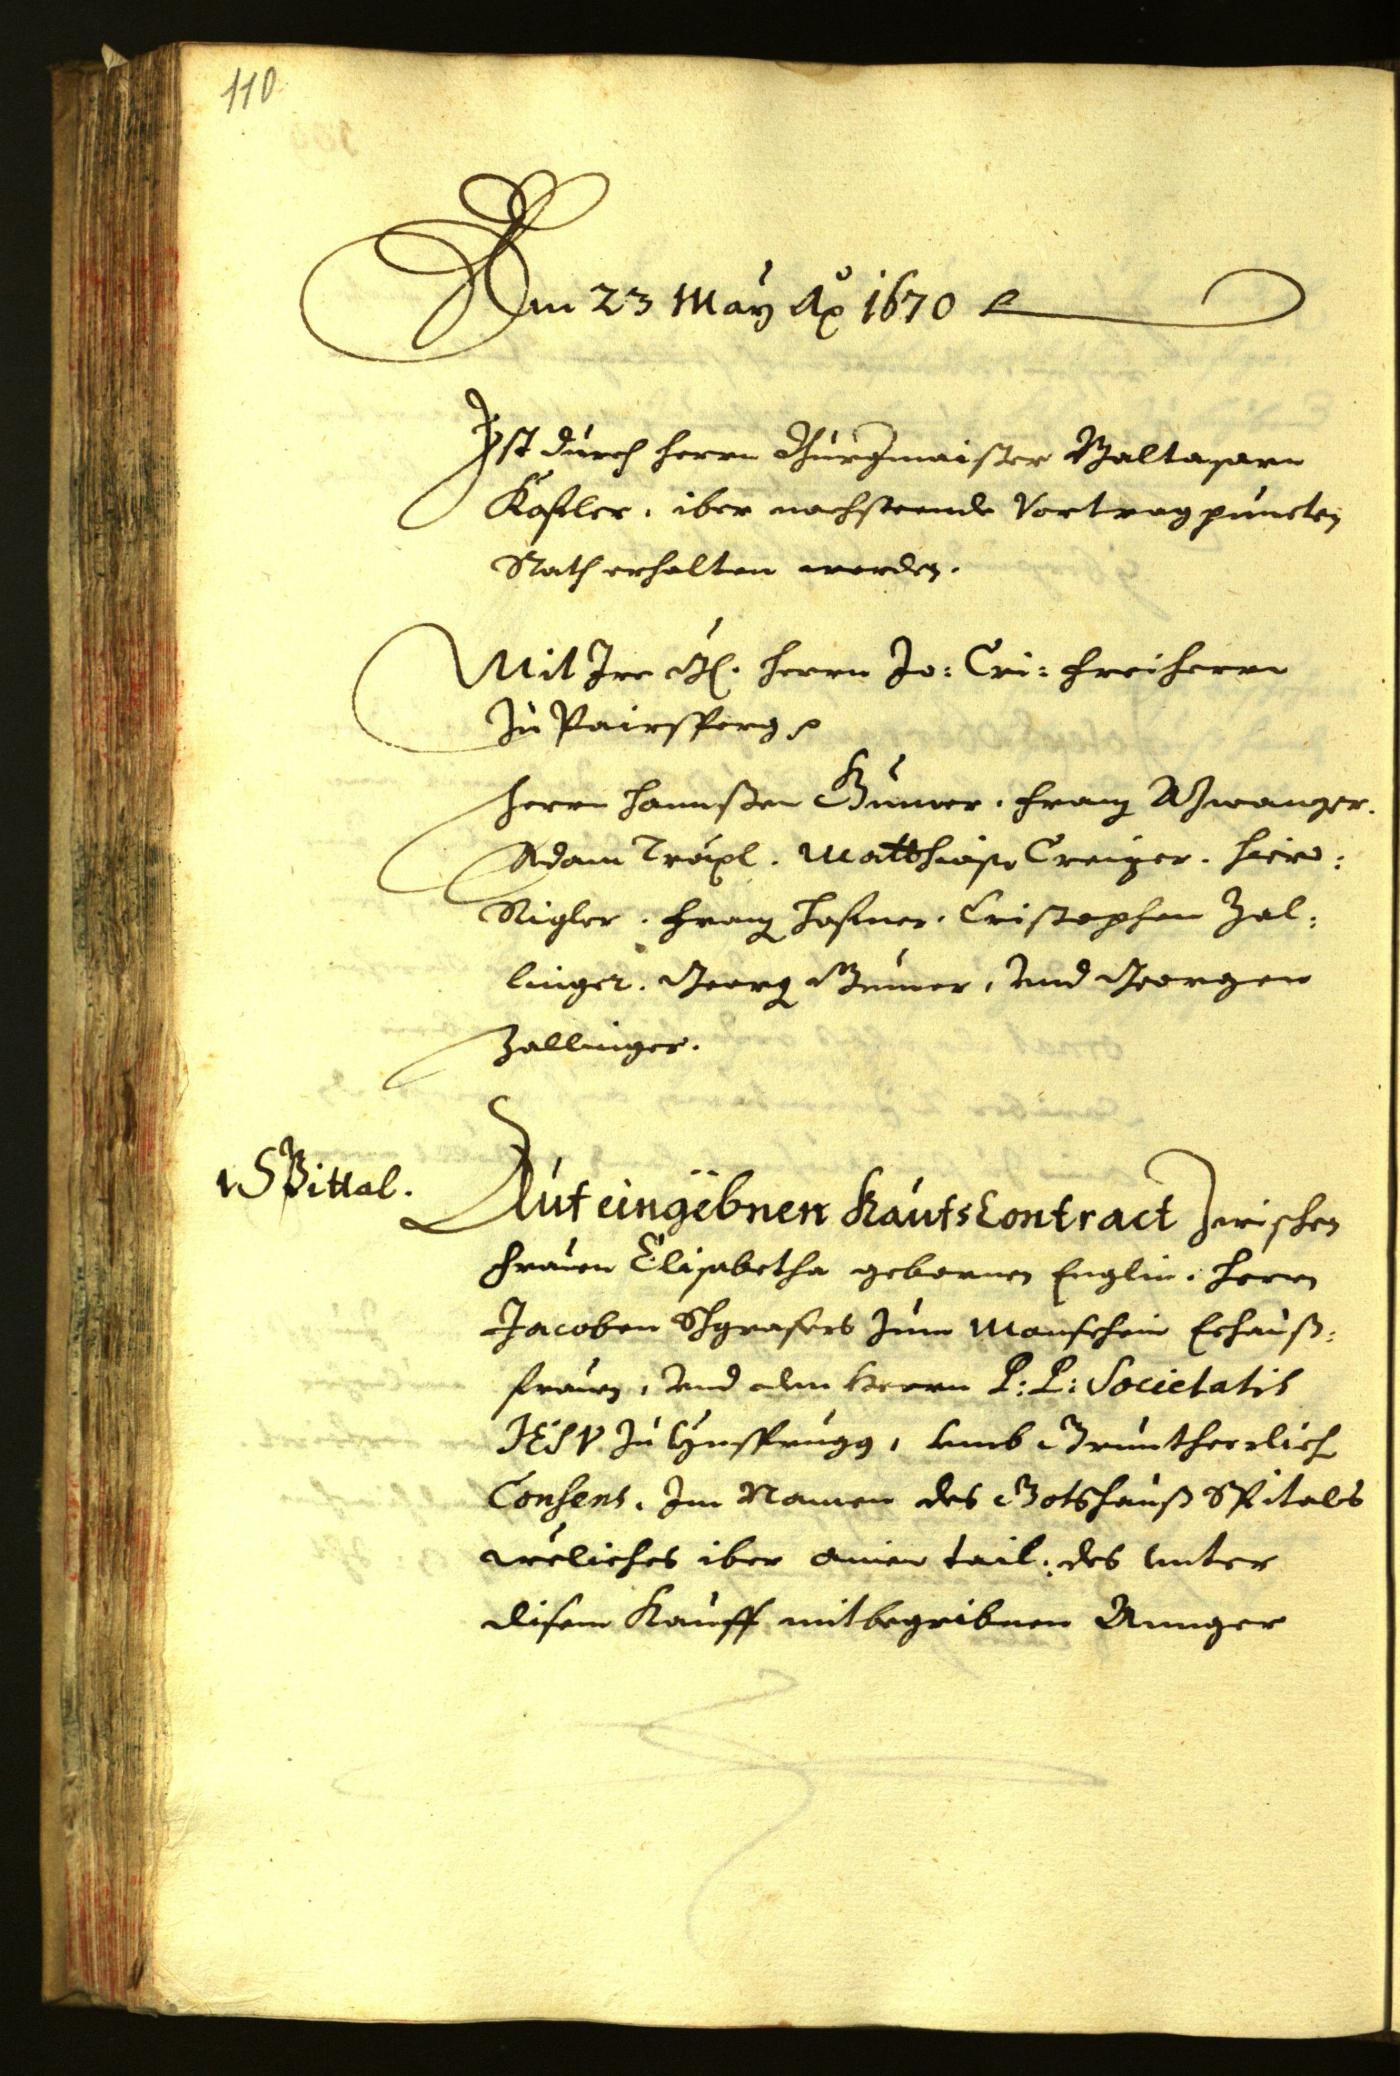 110
Den 23 May Ao 1670
Ist durch herrn Burgmaister Baltasarn
Kofler. iber nachsteende Vortragpuncten
Rath erhalten worden.
Mit Ire G. herrn Jo: Cri: freiherrn
Zu Pairsperg
herrn hannßen Gumer. franz Wanger.
Adam Tröxl. Matthiasn Creizer. hiero:
Rigler. franz hafner. Cristophen Zal:
linger. Georg Gumer, und Georgen
Zallinger.
Spittal.
Auf eingebnen Kaufs Contract Zwischen
frauen Elisabetha gebornen Englin. herrn
Jacoben Schgrafers Zum Manschein Eehauß:
frauen, und den herrn P: P: Societatis
JESV Zu Ynsprugg, umb Gruntherrlich
Consens. Im Namen des Gotshauß Spitals
weliches iber ainen tail: des unter
disem Kauff mitbegribnen Annger